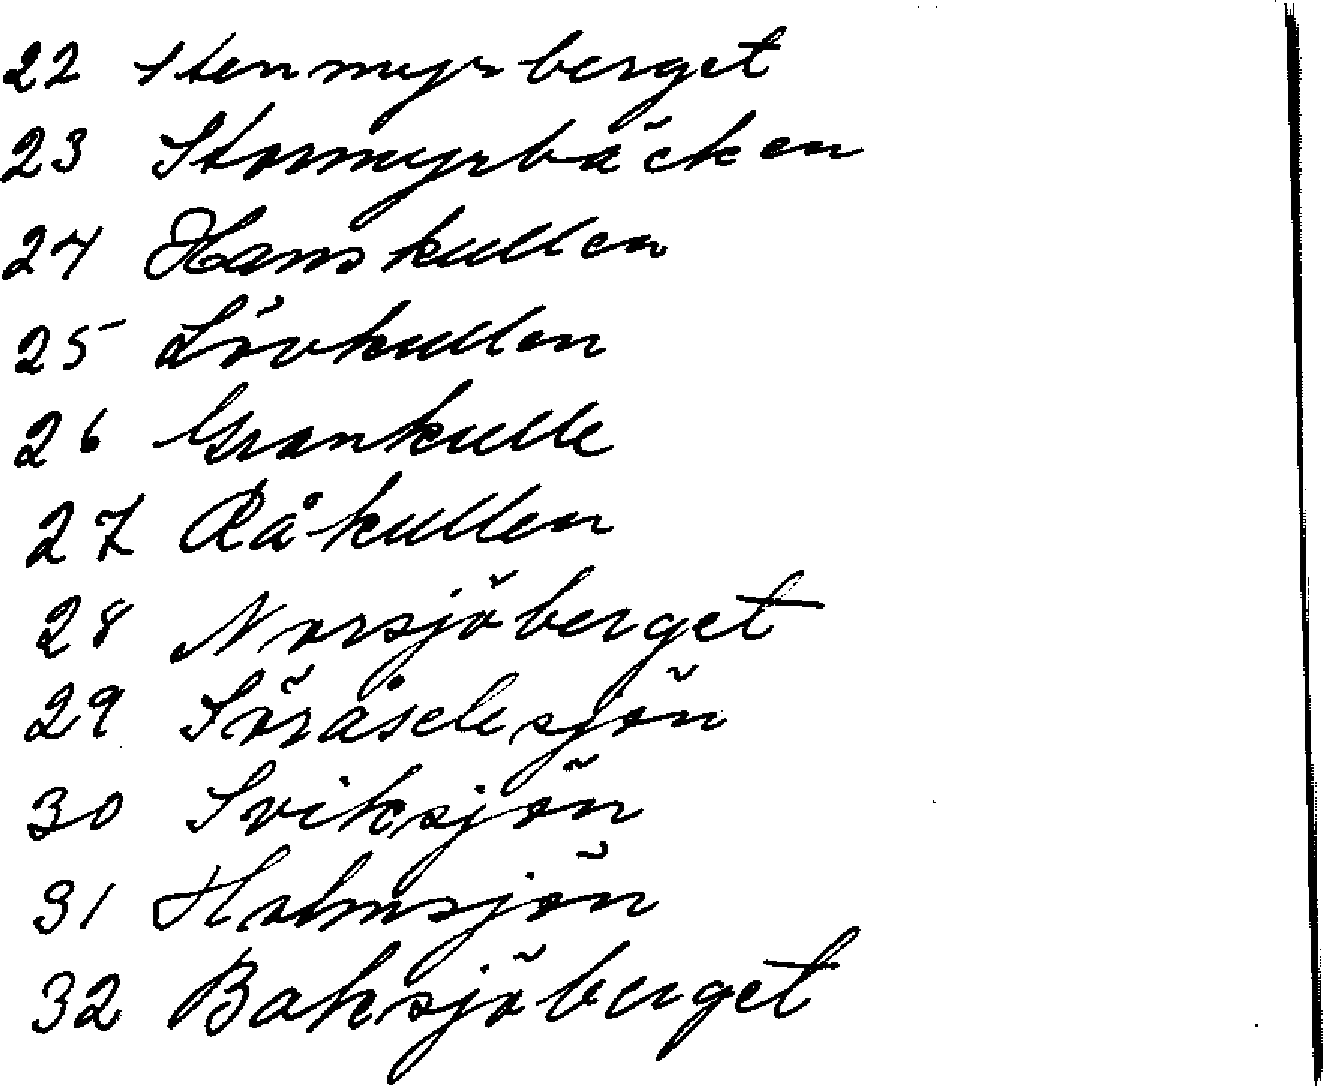 22 Stenmyrberget
23 Stormyrbäcken
24 Hanskullen
25 Lövkullen
26 Grankulle
27 Råkullen
28 Norsjöberget
29 Söråselesjön
30 Sviksjön
31 Holmsjön
32 Baksjöberget